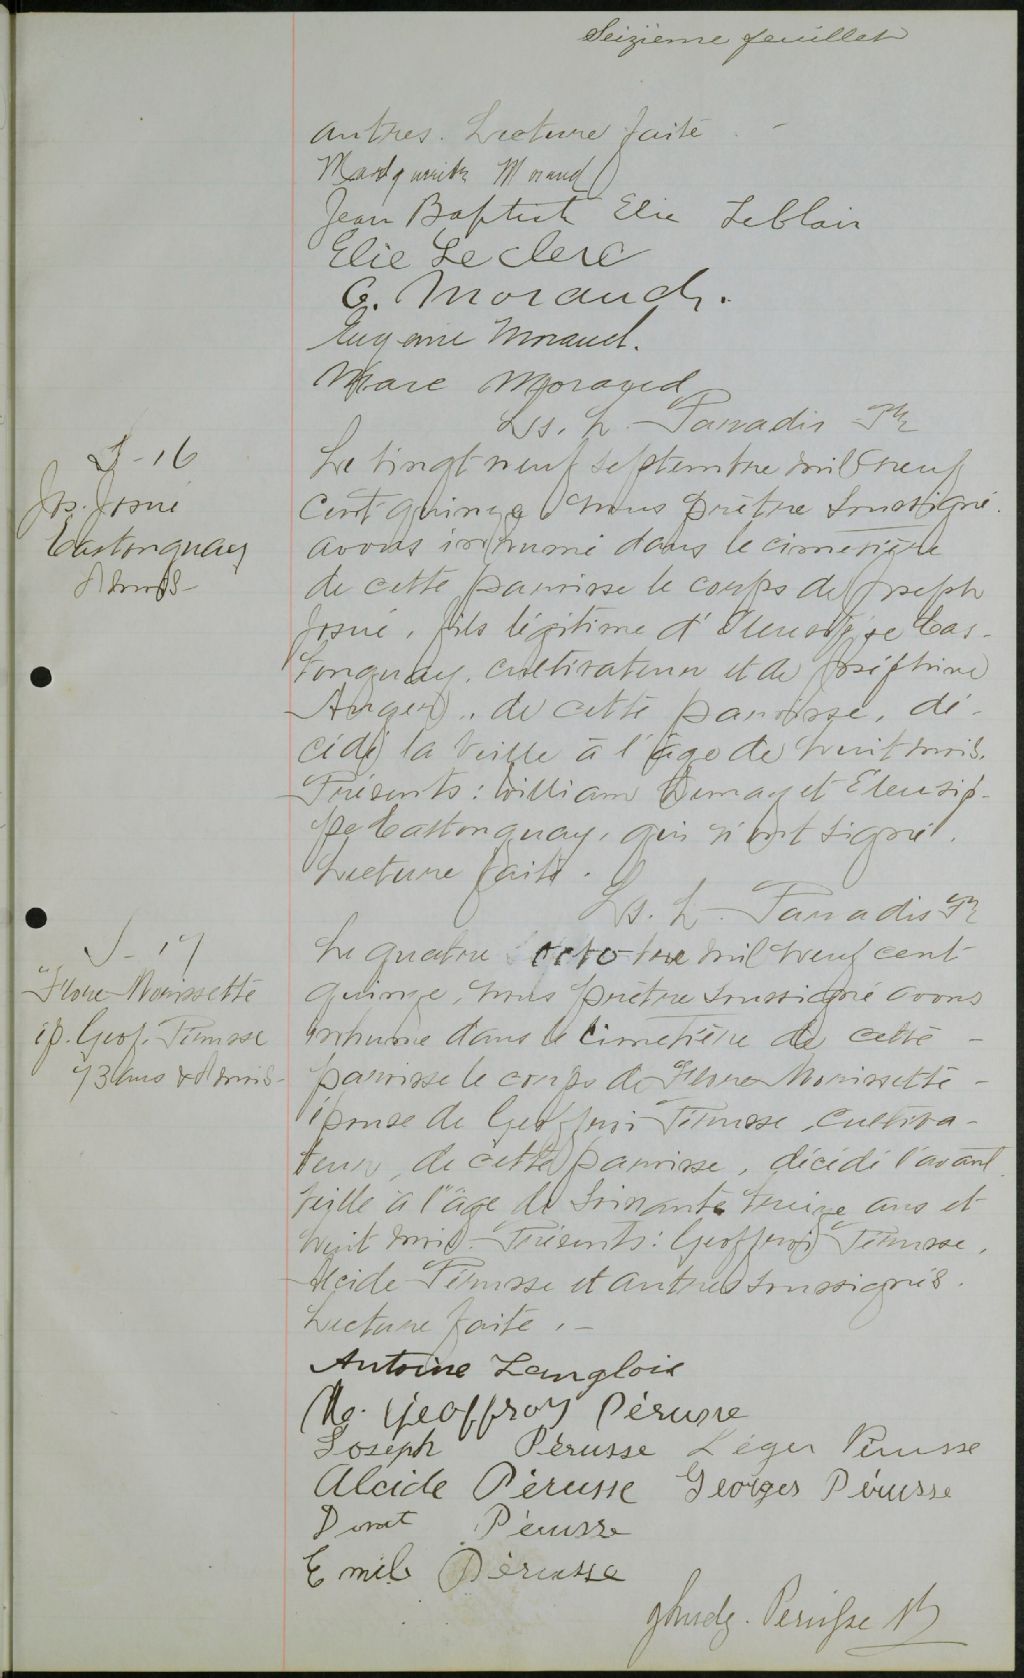 Seizième feuillet
autres. Lecture faite. -
Marguerite Morand
Jean Baptist Elie Leblair
Elie Leclerc
G. Morand.
Eugenie Morand.
Marc Morand
Ls. L. Paradis Ptr
S-16
Jos. Josué
Castonguay
8 mois-
Le vingt neuf septembre mil neuf
cent quinze, nous prêtre soussigné
avons inhumé dans le cimetière
de cette paroisse le corps de Joseph
Josué, fils légitime d'Eleusippe Cas-
tonguay, cultivateur et de Joséphine
Auger, de cette paroisse, dé-
cédé la veille à l'âge de huit mois.
Présents: William et Eleusip-
pe Castonguay, qui n'ont signé.
Lecture faite.
Ls. L. Paradis Ptr
S-17
Flore Morissette
ép. Geof. Pérusse
73 ans & 8 mois-
Le quatre octobre mil neuf cent
quinze, nous prêtre soussigné avons
inhumé dans le cimetière de cette -
paroisse le corps de Flore Morissette -
épouse de Geoffroi Pérusse, cultiva-
teur, de cette paroisse, décédé l'avant
veille à l'âge de soixante treize ans et
huit mois. Présents: Geoffroi Pérusse,
Alcide Pérusse et autres soussignés.
Lecture faite. -
Antoine Langlois
Geoffroy Pérusse
Joseph Pérusse Léger Pérusse
Alcide Pérusse Georges Pérusse
Donat Pérusse
Emile Pérusse
Pérusse